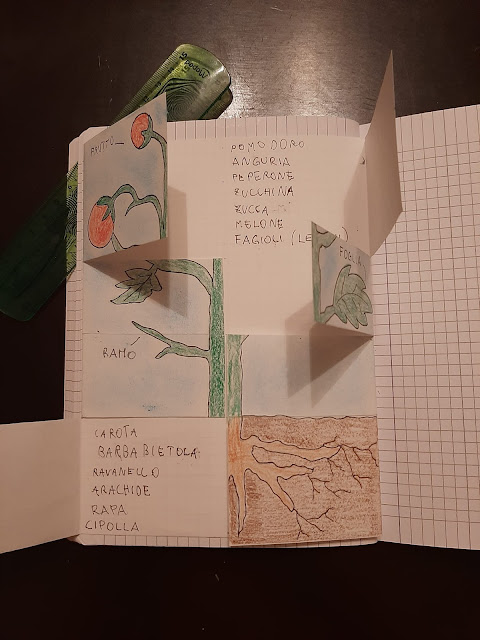 FRUTTO
POMODORO
ANGURIA
PEPERONE
ZUCCHINA
ZUCCA
MELONE
FAGIOLI (LE
FOGLIA
RAMO
CAROTA
BARBABIETOLA
RAVANELLO
ARACHIDE
RAPA
CIPOLLA